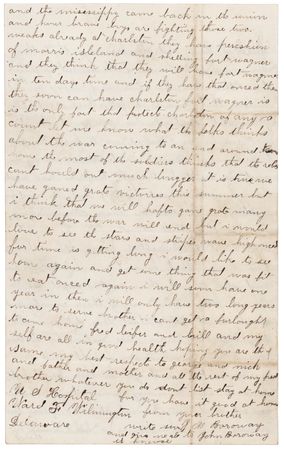 and the mississippy came back in th unin
and hour brave boys are fighting these two
weaks already at charleston they have possesion
of morris isleland and shelling fort wagner
and they think that they will have fort wagner
in ten days time and if they have that onced then
they soon can have charleston fort wagner is
is the only fort that protects charleston of any a
count let me know what the folks thinks
about the war cuming to an end around
home the most of the soldiers thinks that the rebs
cant hould out much longer it is true we
have ganed grate victories this summer but
i think that we will hafto gane grate many
more before the war will end but i would
love to see the stars and stripes wave high onced
for time is getting long i would like to see
hom again and get some thing that was fit
to eat onced again i will soon have one
year in then i will only have two long years
more to serve brother i cant get a furlought
to come home fred leifer and bill and my
self are all in good health hoping you are the
same my best respects to george and nick
and batch and mother and all the rest of my
brother whatever you do dont list stay at home
for you have it good at home
U S Hospital
Ward F Wilmington from your brother
Delaware
write soon Boroway
and give me to John Boroway